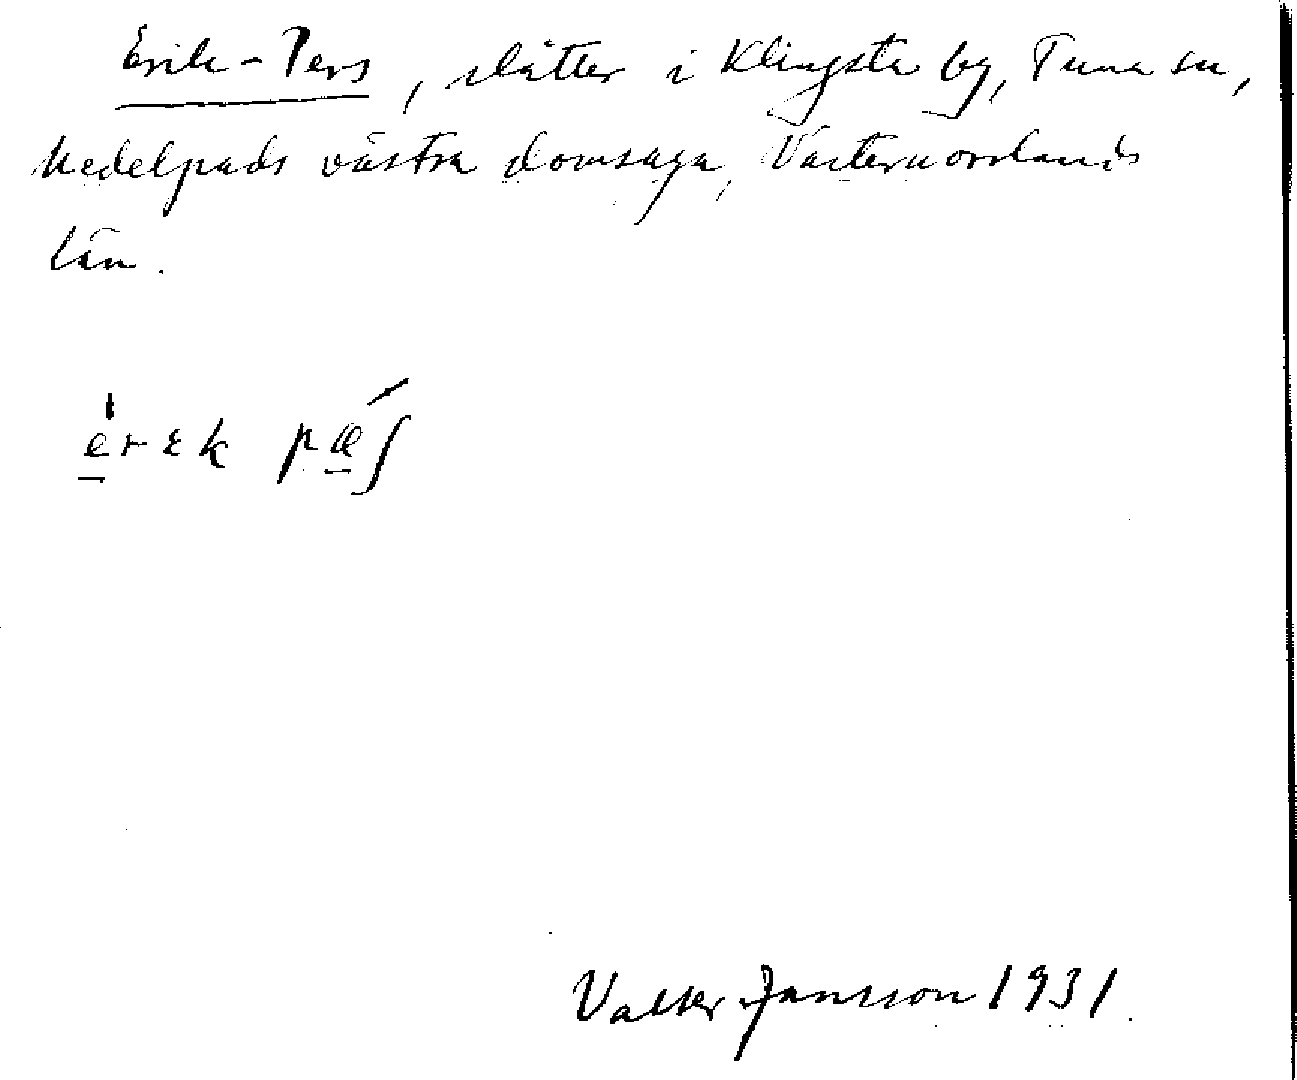 Erik-Pers, slåtter i Klingsta by, Tuna sn,
Medelpads västra domsaga, Västernorrlands
län.
e̲̍rɛk pǽ̲ʃ
Valter Jansson 1931.